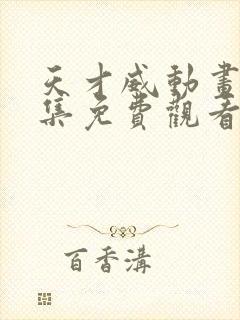 天才威動畫
集免費觀看
百香溝